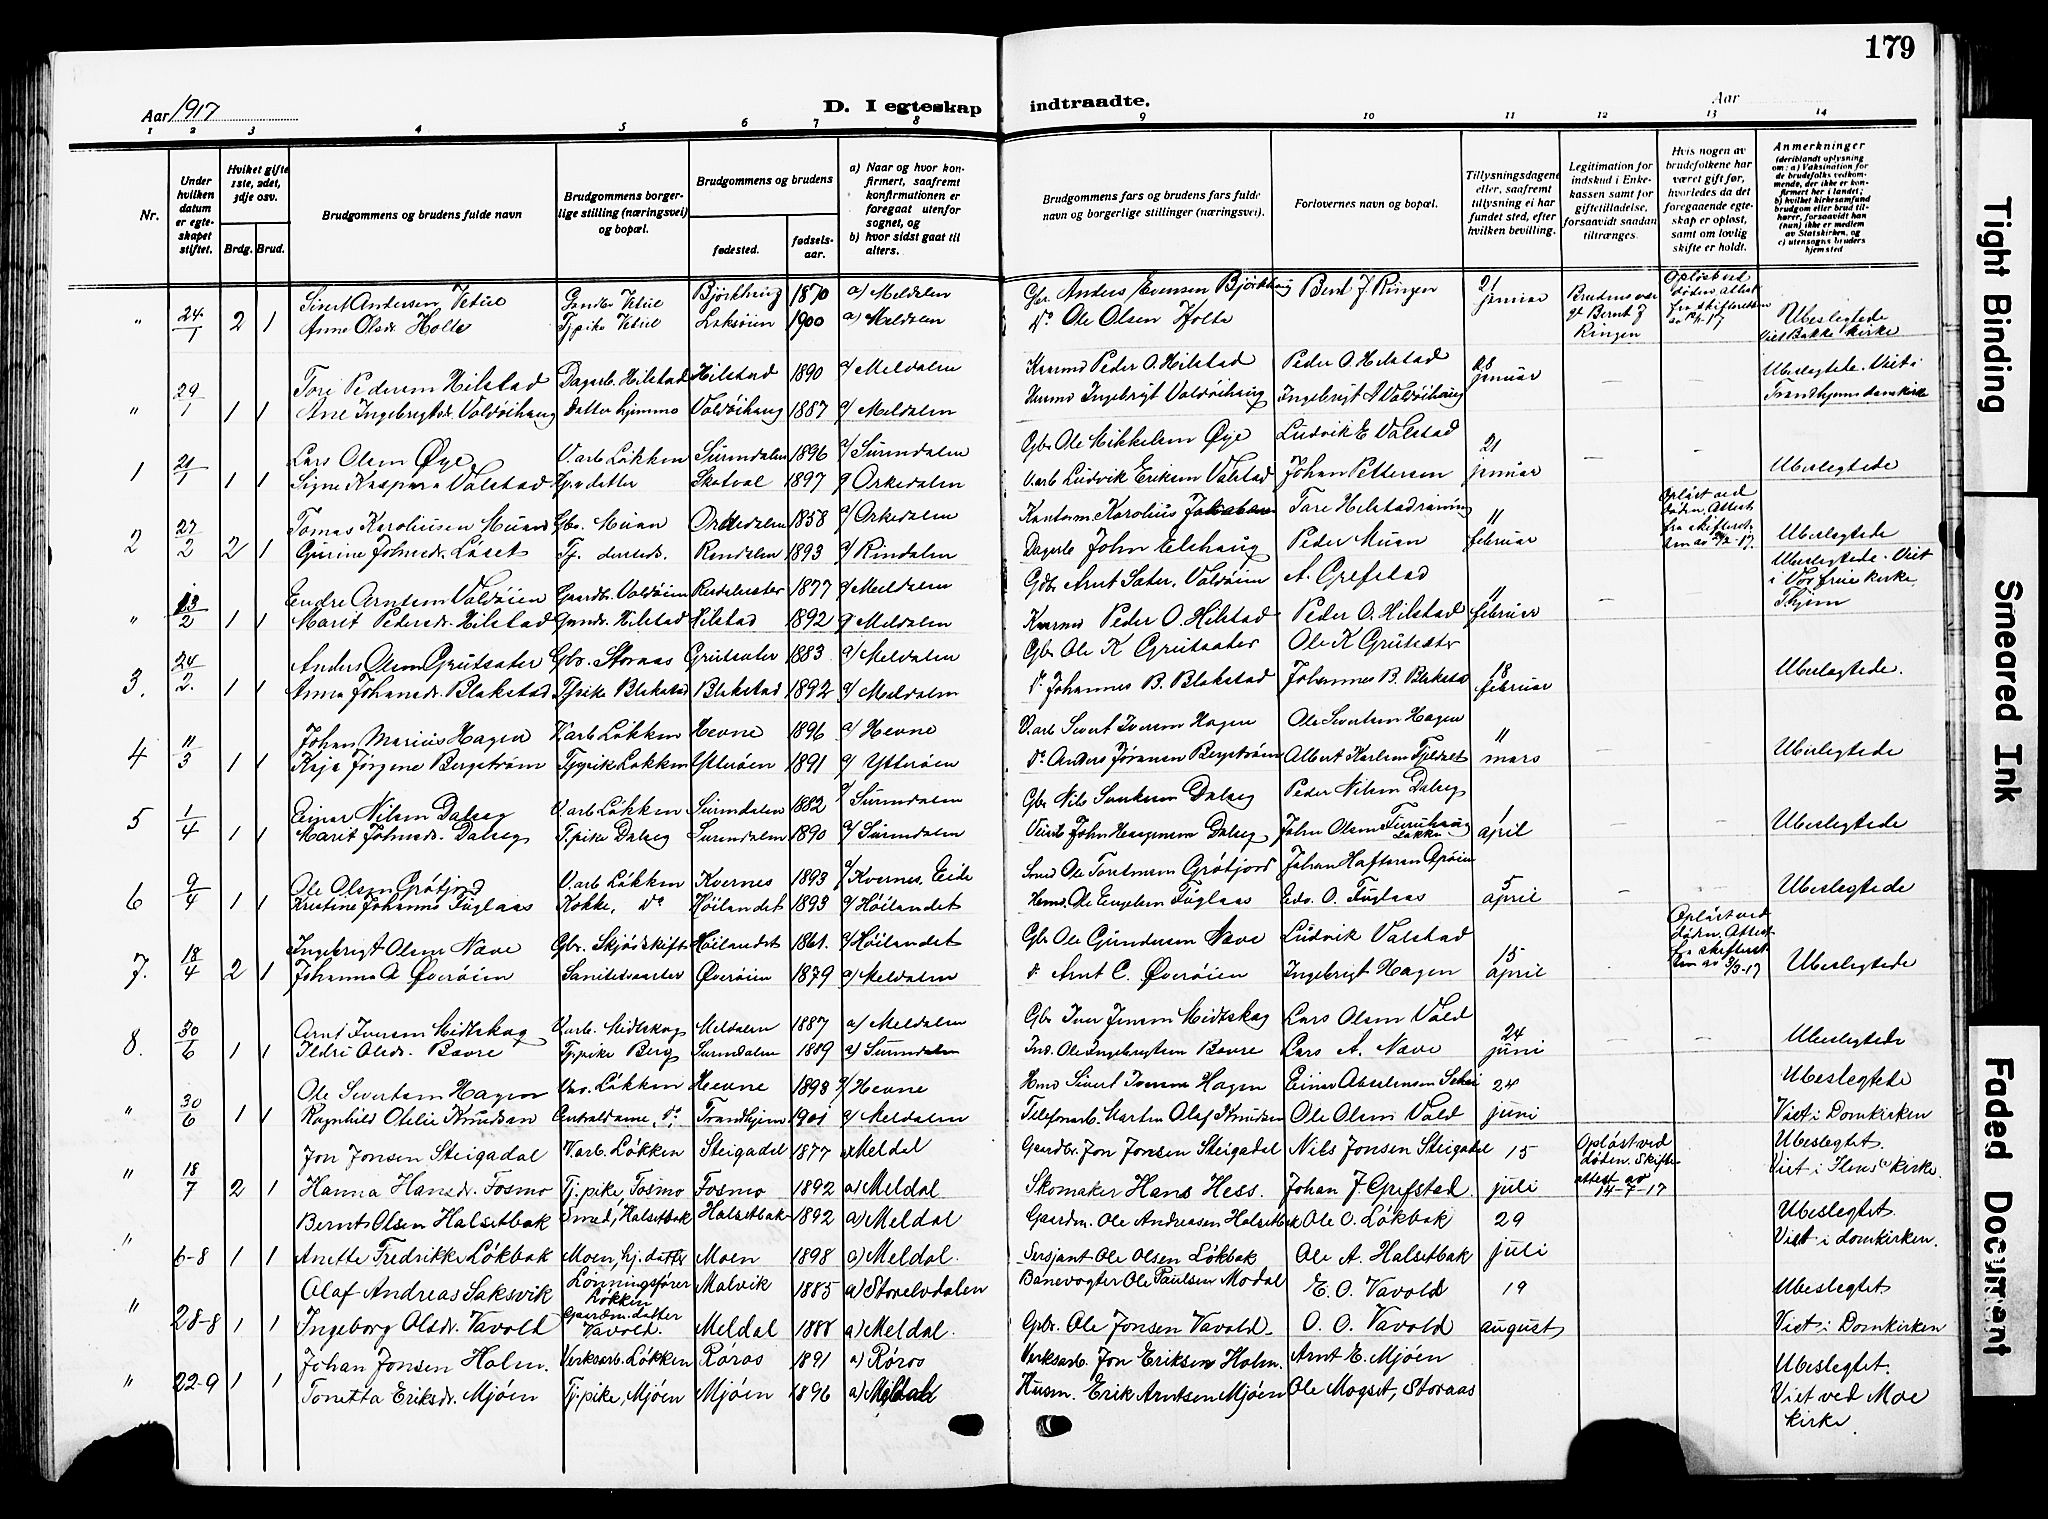 179
Aar 1917
D. I egteskap indtraadte.
Aar
1 2 3 4 5 6 7 8 9 10 11 12 13 14
Nr.
Under hvilken datum er egteskapet stiftet.
Hvilket gifte 1ste, 2det, 3dje osv.
Brdg. Brud.
Brudgommens og brudens fulde navn
Brudgommens borgerlige stilling (næringsvei) og bopæl.
Brudgommens og brudens
fødested.
fødselsaar.
a) Naar og hvor konfirmert, saafremt konfirmationen er foregaat utenfor sognet, og
b) hvor sidst gaat til alters.
Brudgommens fars og brudens fars fulde navn og borgerlige stillinger (næringsvei).
Forlovernes navn og bopæl.
Tillysningsdagene eller, saafremt tillysning ei har fundet sted, efter hvilken bevilling.
Legitimation for indskud i Enkekassen samt for giftetilladelse, forsaavidt saadan tiltrænges.
Hvis nogen av brudefolkene har været gift før, hvorledes da det foregaaende egteskap er opløst, samt om lovlig skifte er holdt.
Anmerkninger (deriblandt oplysning om: a) Vaksination for de brudefolks vedkommende, der ikke er konfirmert her i landet; b) hvilket kirkesamfund brudgom eller brud tilhører, forsaavidt han (hun) ikke er medlem av Statskirken, og c) utensogns bruders hjemsted
" 24/1 2 1 Sivert Andersen Vetlie Gaardbr. Vetlie 1870 a) Meldalen Gbr. Anders Evensen Bent J. Ringen 21 januar Opløst ved døden attest fra skifteretten
Anne Olsdr. Holte Tjpike Vetlie Laksøien 1900 a) Meldalen Do Ole Olsen Holte Ubeslegtede Viet Bakke kirke
" 29/1 1 1 Tore Pedersen Hilstad Dagarb. Hilstad Hilstad 1890 a/ Meldalen Husmd Peder O. Hilstad Peder O. Hilstad 28 januar — — Ubeslegtede. Viet i Trondhjems domkirke
Ane Ingebrigtsdr. Voldøihaug datter hjemme Voldøihaug 1887 a/ Meldalen Husmd Ingebrigt Voldøihaug Ingebrigt A Voldøihaug
1 21/1 1 1 Lars Olsen Øye V.arb Løkken Surendalen 1896 a/ Surendalen Gbr Ole Mikkelsen Øye Ludvik E Valstad 21 januar — — Ubeslegtede
Signe Kaspara Valstad datter Skatval 1897 a/ Orkedalen V.arb Ludvik Eriksen Valstad Johan Pettersen
2 27/2 2 1 Tomas Karoliusen Muan Gbr. Muan Orkedalen 1858 a/ Orkedalen Karolius Tore 11 februar Opløst ved døden. Attest fra skifteretten av
Gurine Johnsdr. Løset Tj. Rindalen 1893 a/ Rindalen Dagarb John Elshaug Peder Muan Ubeslegtede
" 13/2 1 1 Endre Arntsen Voldøien Gaardbr. Voldøien 1877 a/ Meldalen Gbr Arnt Voldøien A. Grefstad 11 februar — Ubeslegtede. Viet i Vor frue kirke, Thjem
Marit Pedersdr. Hilstad Hilstad Hilstad 1892 a/ Meldalen Husmd Peder O. Hilstad Peder O. Hilstad
3. 24/2. 1 1 Anders Olsen Grutsæter Gbr. Storaas Grutsæter 1883 a/ Meldalen Gbr Ole K Grutsæter Ole K Grutsæter 18 februar Ubeslegtede.
Anna Johansdr. Blakstad Tjpike Blakstad Blakstad 1892 a/ Meldalen Do Johannes B. Blakstad Johannes B. Blakstad
4 11/3 1 1 Johan Marius Hagen V.arb Løkken Hevne 1896 a/ Hevne V.arb Sivert Iversen Hagen Ole Sivertsen Hagen 11 mars — — Ubeslegtede
Kaja Jørgine Bergstrøm Tjpike Løkken Ytterøen 1891 a/ Ytterøen Do Anders Bergstrøm Albert Karlsen
5 1/4 1 1 Einar Nilsen Dalseg V.arb Løkken Surendalen 1882 a/ Surendalen Gbr Nils Dalseg Peder Nilsen Dalseg 1 april Ubeslegtede
Marit Johnsdr. Dalseg Tj.pike Dalseg Surendalen 1890 a/ Surendalen John Dalseg John Olsen Furuhaug Løkken
6 9/4 1 1 Ole Olsen Grøtfjord V.arb Løkken Kvernes 1893 a/ Kvernes, Eide Smed Ole Grøtfjord Johan 5 april — Ubeslegtede
Kristine Johanne Fuglaas Kokke, Do Høilandet 1893 a/ Høilandet Ole Fuglaas Edv. O. Fuglaas
7. 18/4 2 1 Ingebrigt Olsen Næve Gbr. Skjødskift Høilandet 1861. a/ Høilandet Gbr Ole Gundersen Næve Ludvik Valstad 15 april Opløst ved døden. Attest fra skifteretten av 3/3-17
Johanna A Øverøien Øverøien 1879 a/ Meldalen d. Arnt C. Øverøien Ingebrigt Hagen Ubeslegtede
8. 30/6 1 1 Arnt Iversen Midtskog V.arb. Midtskog Meldalen 1887 a/ Meldalen Gbr Iver Jensen Midtskog Lars Olsen Vold 24 juni — — Ubeslegtede
Ildri Olsdr. Bovre Tjpike Berg Surendalen 1889 a/ Surendalen Ind. Ole Ingebrigtsen Bovre Lars A. Næve
" 30/6 1 1 Ole Sivertsen Hagen Løkken Hevne 1898 a/ Hevne Sivert Iversen Hagen Einar 24 juni Ubeslegtede
Ragnhild Otelie Knudsen Centraldame, do, Trondhjem 1901 a/ Meldalen Telefonarb. Marten Olaf Knudsen Ole Olsen Vold Viet i Domkirken
" 18/7 2 1 Jon Jonsen Steigadal V.arb. Løkken Steigadal 1877 a) Meldal Gaardbr. Jon Jonsen Steigadal Nils Jonsen Steigadal 15 juli Opløst ved døden. Skifteattest av 14-7-17 Ubeslegtet. Viet i Ilens kirke.
Hanna Hansdr. Fosmo Tj.pike, Fosmo Fosmo 1892 a) Meldal Skomaker Hans Hess. Johan J. Grefstad.
" 6-8 1 1 Bernt Olsen Halsetbak Smed, Halsetbak Halsetbak 1892 a) Meldal Gaardm. Ole Andreasen Halsetbak Ole O. Løkbak 29 juli Ubeslegtet. Viet i domkirken.
Anette Fredrikke Løkbak Moen, hj. datter Moen 1898 a) Meldal. Sersjant Ole Olsen Løkbak Ole A. Halsetbak
" 28-8 1 1 Olaf Andreas Saksvik Lønningsfører Løkken Malvik 1885 a) Storelvdalen Banevogter Ole Paulsen Modal E. O. Vavold 19 august Ubeslegtet
Ingeborg Olsdr. Vavold Gaardm. datter Vavold. Meldal 1888 a) Meldal. Gbr. Ole Jonsen Vavold O. O. Vavold Viet i Domkirken
" 22-9 1 1 Johan Jonsen Holm. Verksarb. Løkken Røros 1891 a) Røros Verksarb. Jon Eriksen Holm. Arnt E. Mjøen Ubeslegtet.
Tonetta Eriksdr. Mjøen Tj.pike, Mjøen Mjøen 1896 a) Meldal Husm. Erik Arntsen Mjøen Ole Mogset, Storaas Viet ved Moe kirke.
Tight Binding
Smeared Ink
Faded Document